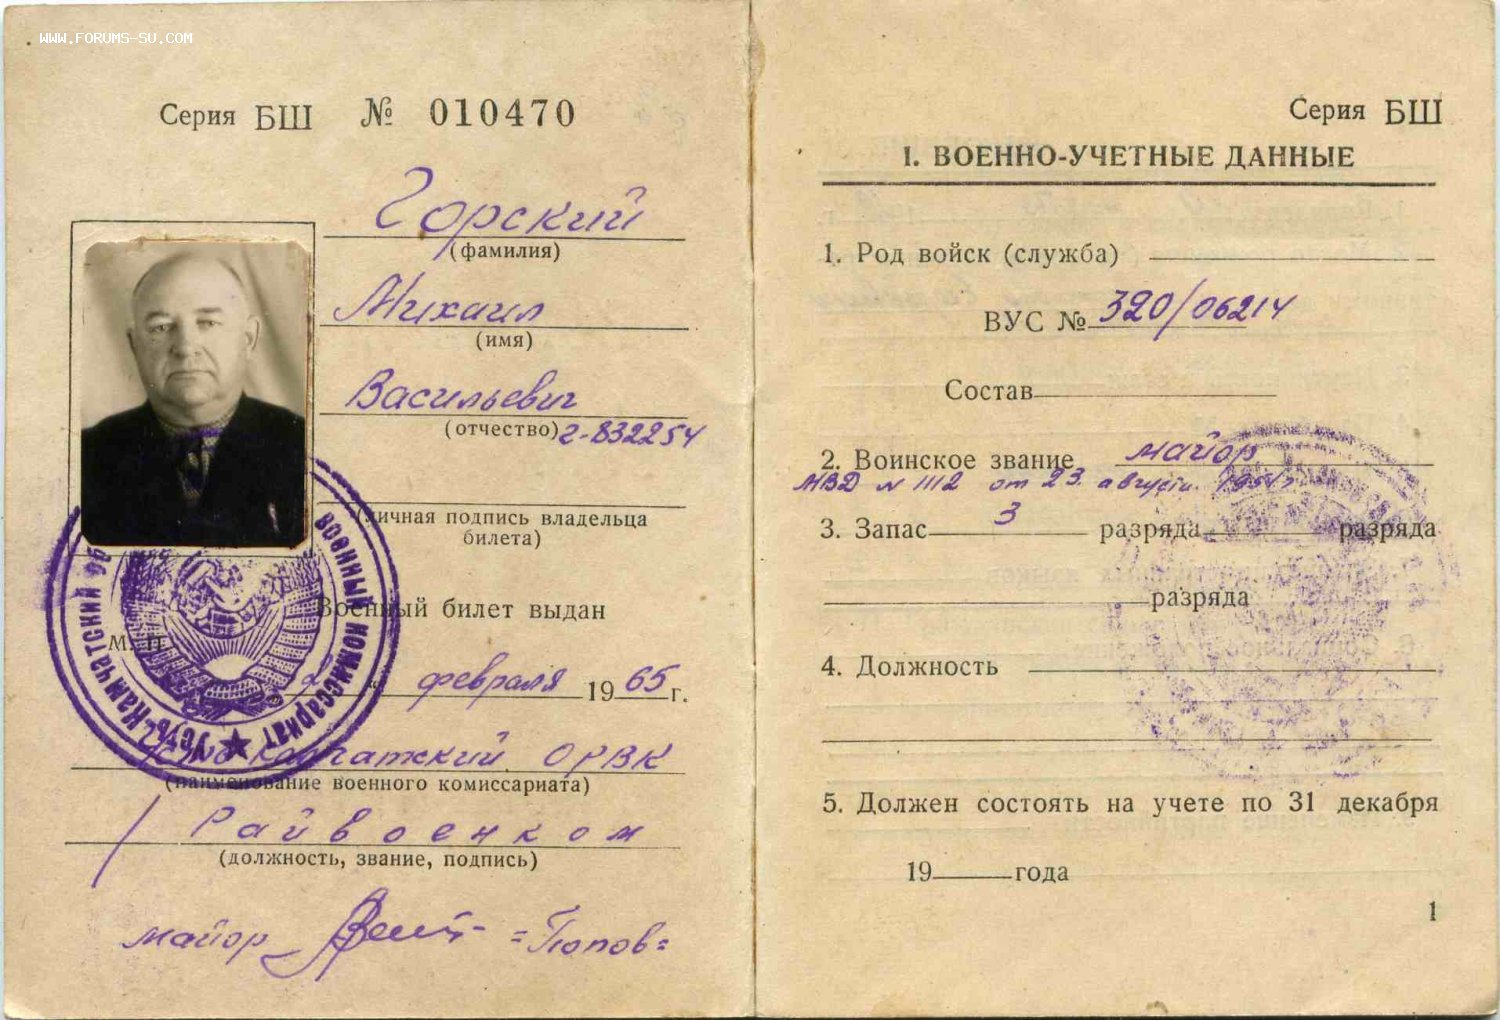 WWW.FORUMS-SU.COM
Серия БШ № 010470
Горский
(фамилия)
Михаил
(имя)
Васильевич
(отчество) г-832254
(личная подпись владельца
билета)
Военный билет выдан
М. П.
2 " февраля 1965 г.
Усть-Камчатский ОРВК
(наименование военного комиссариата)
Райвоенком
(должность, звание, подпись)
майор =Попов=
Усть-Камчатский об военный комиссариат
Серия БШ
I. ВОЕННО-УЧЕТНЫЕ ДАННЫЕ
1. Род войск (служба)
ВУС № 320/06214
Состав
2. Воинское звание майор
МВД N 1112 от 23 августа 1954 г
3. Запас 3 разряда разряда
разряда
4. Должность
5. Должен состоять на учете по 31 декабря
19 года
1